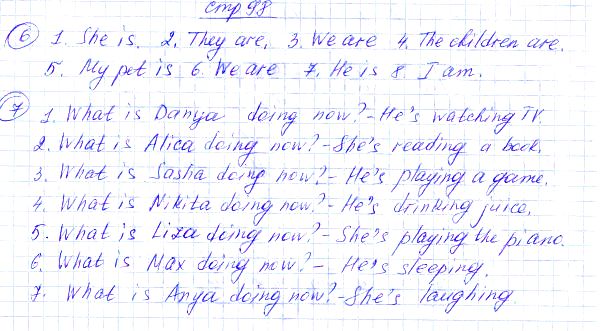 стр 98
6 1. She is. 2. They are. 3. We are 4. The children are.
5. My pet is 6. We are 7. He is 8. I am.
7 1. What is Danya doing now? - He's watching TV.
2. What is Alica doing now? - She's reading a book.
3. What is Sasha doing now? - He's playing a game.
4. What is Nikita doing now? - He's drinking juice.
5. What is Liza doing now? - She's playing the piano.
6. What is Max doing now? - He's sleeping.
7. What is Anya doing now? - She's laughing